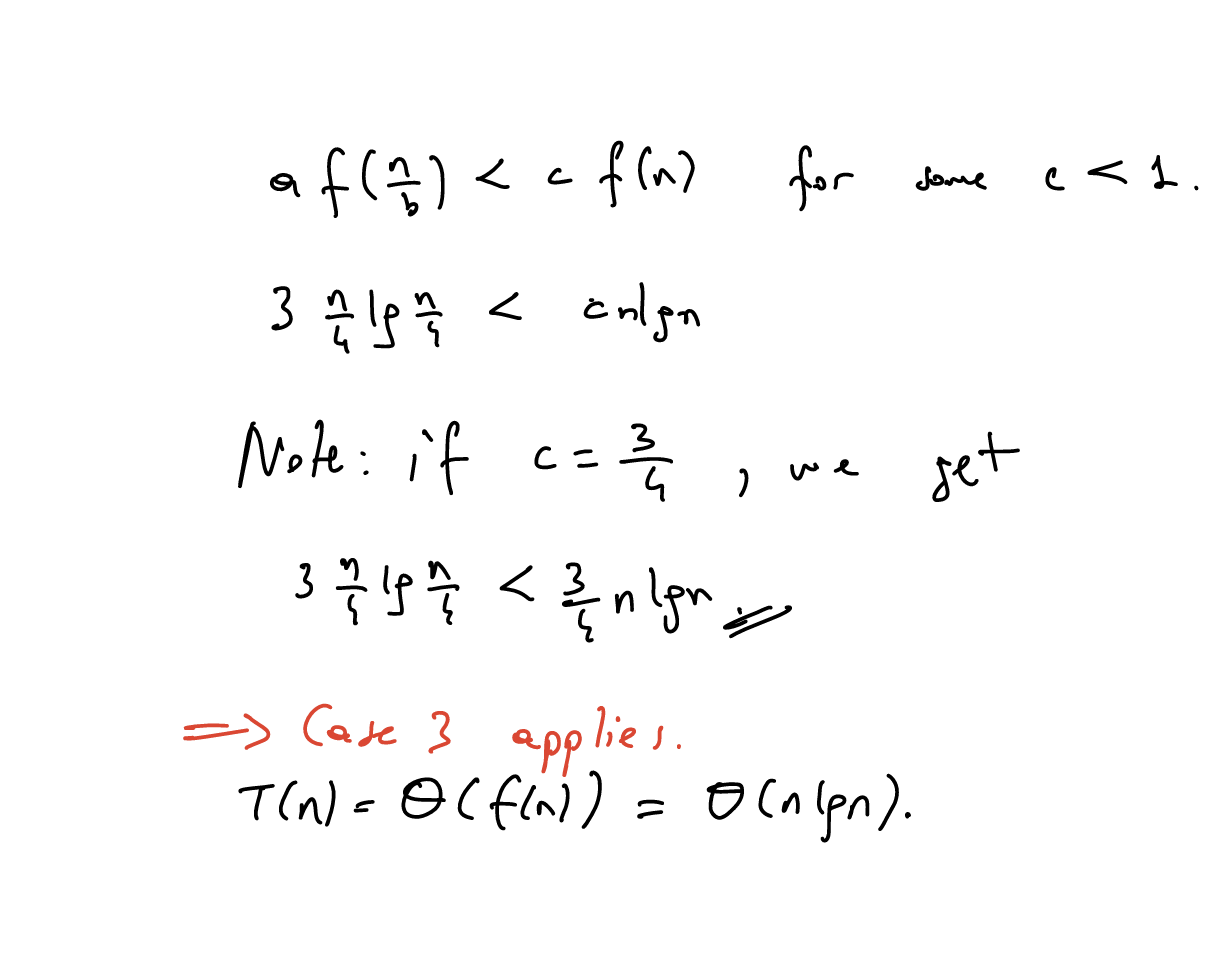 a f(n/b) < c f(n) for some c < 1.
3 n/4 lg n/4 < c n lg n
Note: if c = 3/4, we get
3 n/4 lg n/4 < 3/4 n lg n.
⇒ Case 3 applies.
T(n) = Θ(f(n)) = Θ(n lg n).